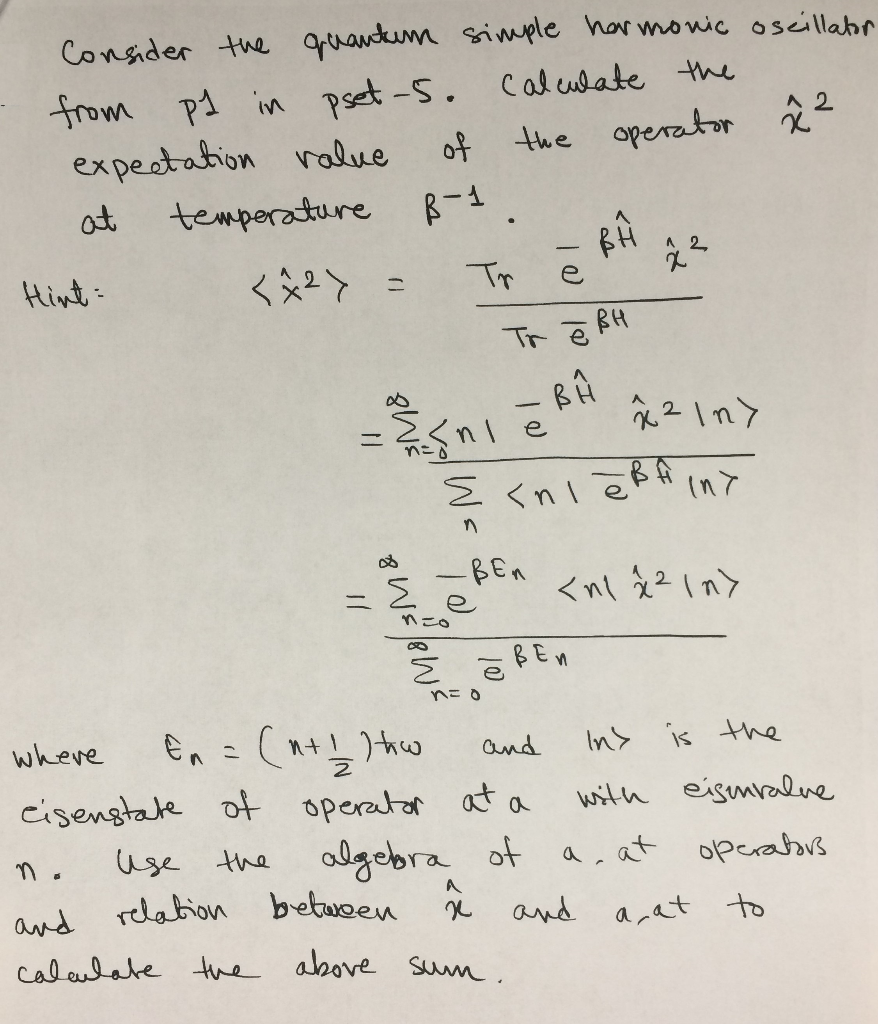 Consider the quantum simple harmonic oscillator
from p1 in pset-5. Calculate the
expectation value of the operator x̂²
at temperature β⁻¹.
Hint: <x̂²> = Tr e^{-βĤ} x̂² / Tr e^{-βH}
= Σ_{n=0}^{∞} <n| e^{-βĤ} x̂² |n> / Σ_n <n| e^{-βĤ} |n>
= Σ_{n=0}^{∞} e^{-βEn} <n| x̂² |n> / Σ_{n=0}^{∞} e^{-βEn}
where En = (n+1/2)ħω and |n> is the
eisenstate of operator a†a with eigenvalue
n. Use the algebra of a, a† operators
and relation between x̂ and a, a† to
calculate the above sum.